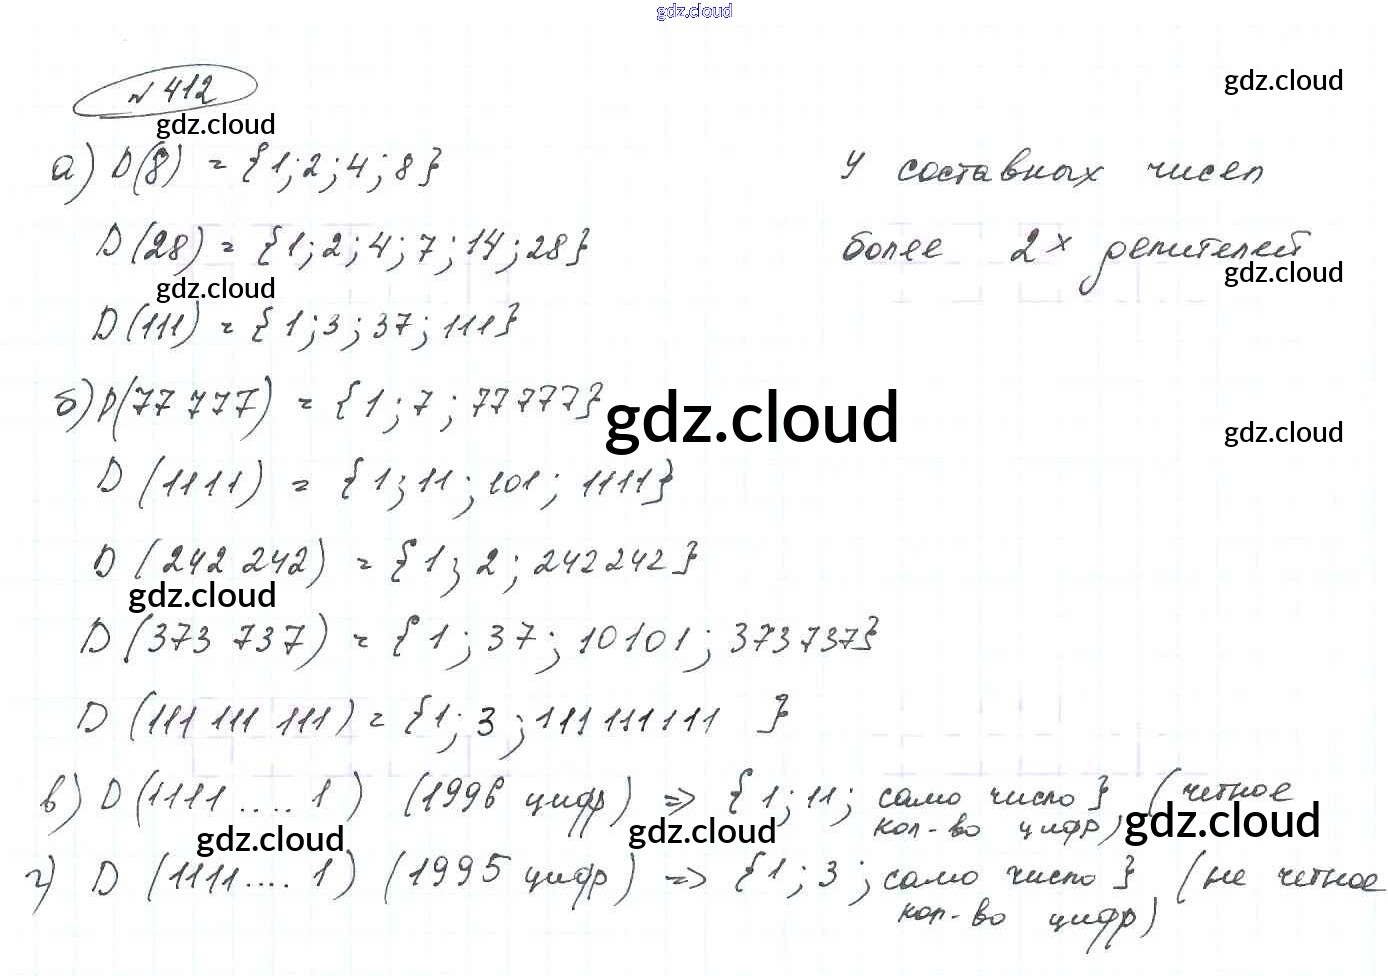 gdz.cloud
№ 412
gdz.cloud
gdz.cloud
а) D(8) = {1; 2; 4; 8}
У составных чисел
D(28) = {1; 2; 4; 7; 14; 28}
более 2х делителей
gdz.cloud
gdz.cloud
D(111) = {1; 3; 37; 111}
б) D(77 777) = {1; 7; 77777}
gdz.cloud
gdz.cloud
D(1111) = {1; 11; 101; 1111}
D(242 242) = {1; 2; 242242}
gdz.cloud
D(373 737) = {1; 37; 10101; 373737}
D(111 111 111) = {1; 3; 111 111 111 }
в) D(1111 .... 1) (1996 цифр) => {1; 11; само число} (четное
кол-во цифр)
gdz.cloud
gdz.cloud
gdz.cloud
г) D(1111 .... 1) (1995 цифр) => {1; 3; само число} (не четное
кол-во цифр)